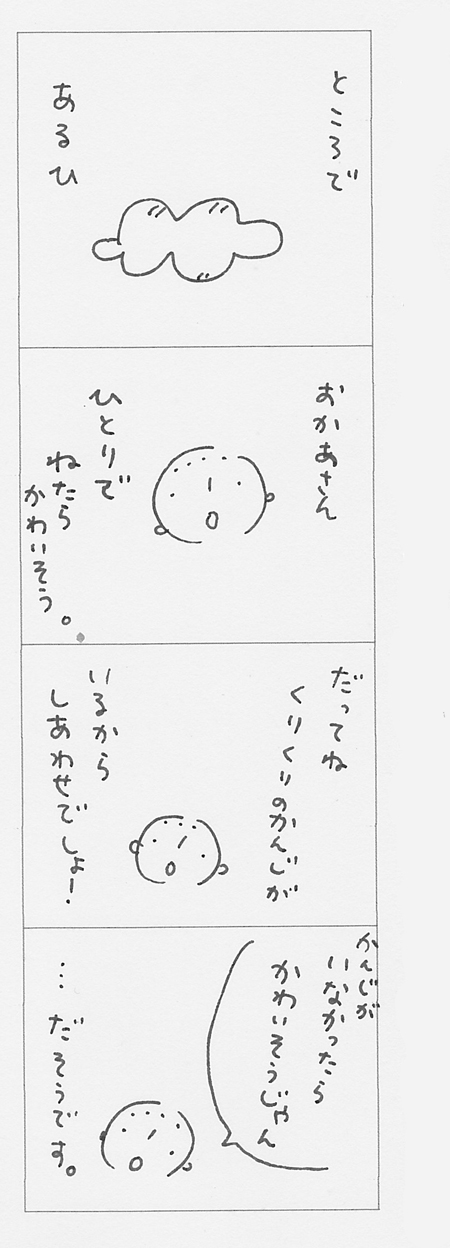 ところで
あるひ
おかあさん
ひとりで
ねたら
かわいそう。
だってね
くりくりのかんじが
いるから
しあわせでしょー
かんじが
いなかったら
かわいそうじゃん
…だそうです。